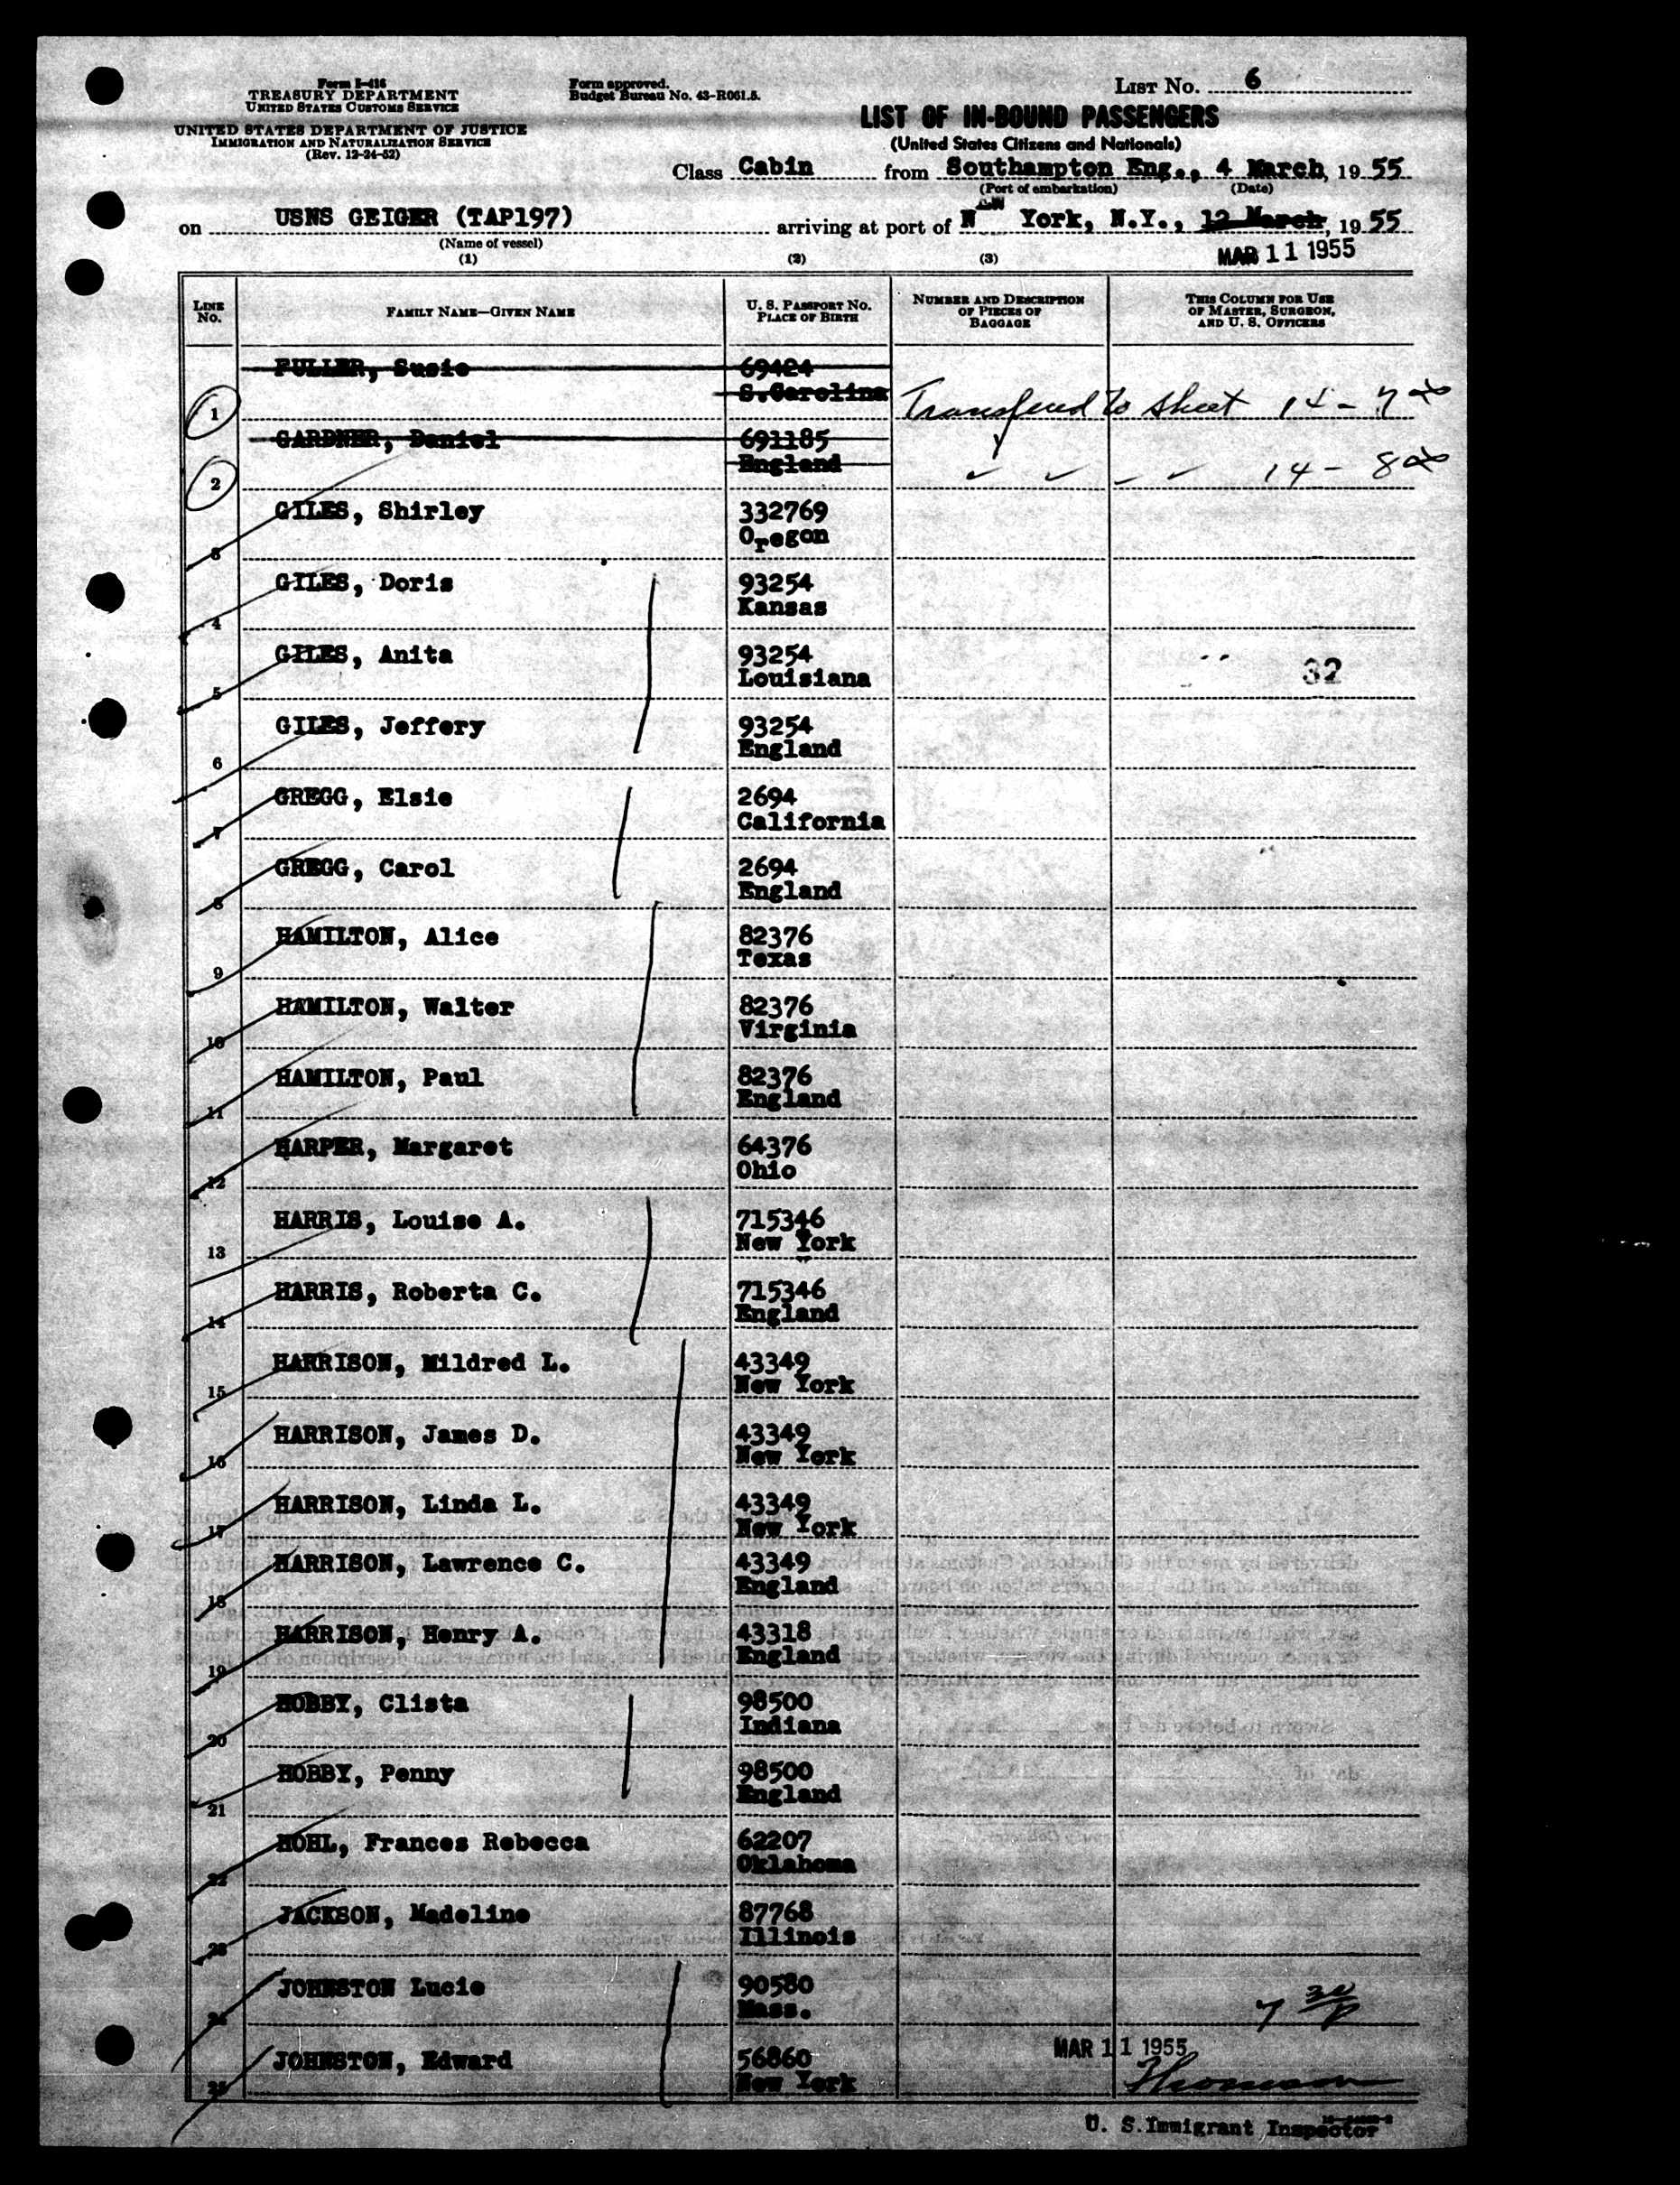 Form I-416
TREASURY DEPARTMENT
UNITED STATES CUSTOMS SERVICE
UNITED STATES DEPARTMENT OF JUSTICE
IMMIGRATION AND NATURALIZATION SERVICE
(Rev. 12-24-52)
Form approved.
Budget Bureau No. 43-R061.5.
LIST No. 6
LIST OF IN-BOUND PASSENGERS
(United States Citizens and Nationals)
Class Cabin from Southampton Eng., 4 March, 1955
(Port of embarkation) (Date)
on USNS GEIGER (TAP197) arriving at port of New York, N.Y., 12 March, 1955
(Name of vessel)
MAR 11 1955
(1) (2) (3)
LINE No. FAMILY NAME—GIVEN NAME U. S. PASSPORT No. PLACE OF BIRTH NUMBER AND DESCRIPTION OF PIECES OF BAGGAGE THIS COLUMN FOR USE OF MASTER, SURGEON, AND U. S. OFFICERS
FULLER, Susie 69424
S.Carolina
1 Transferred to sheet 14 - 7
GARDNER, Daniel 691185
England
2 ✓ ✓ ✓ ✓ 14 - 8
GILES, Shirley 332769
3 Oregon
GILES, Doris 93254
4 Kansas
GILES, Anita 93254
5 Louisiana 32
GILES, Jeffery 93254
6 England
GREGG, Elsie 2694
7 California
GREGG, Carol 2694
8 England
HAMILTON, Alice 82376
9 Texas
HAMILTON, Walter 82376
10 Virginia
HAMILTON, Paul 82376
11 England
HARPER, Margaret 64376
12 Ohio
HARRIS, Louise A. 715346
13 New York
HARRIS, Roberta C. 715346
14 England
HARRISON, Mildred L. 43349
15 New York
HARRISON, James D. 43349
16 New York
HARRISON, Linda L. 43349
17 New York
HARRISON, Lawrence C. 43349
18 England
HARRISON, Henry A. 43318
19 England
HOBBY, Clista 98500
20 Indiana
HOBBY, Penny 98500
21 England
HOHL, Frances Rebecca 62207
22 Oklahoma
JACKSON, Madeline 87768
23 Illinois
JOHNSTON Lucie 90580
24 Mass. 7 30/P
JOHNSTON, Edward 56860
25 New York
MAR 11 1955
Thomson
U. S. Immigrant Inspector